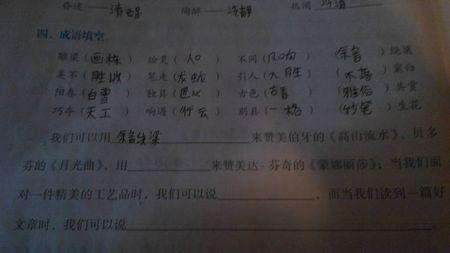 昏迷——清醒 陶醉——冷静 热闹——冷清
四、成语填空。
雕梁（画栋） 脍炙（人口） 不同（凡响） （余音）绕梁
美不（胜收） 笔走（龙蛇） 引人（入胜）
阳春（白雪） 独具（匠心） 古色（古香） （雅俗）共赏
巧夺（天工） 响遏（行云） 别具（一格） （妙笔）生花
我们可以用 余音绕梁 来赞美伯牙的《高山流水》、贝多
芬的《月光曲》，用 来赞美达·芬奇的《蒙娜丽莎》；当我们面
对一件精美的工艺品时，我们可以说 ，而当我们读到一篇好
文章时，我们可以说 。